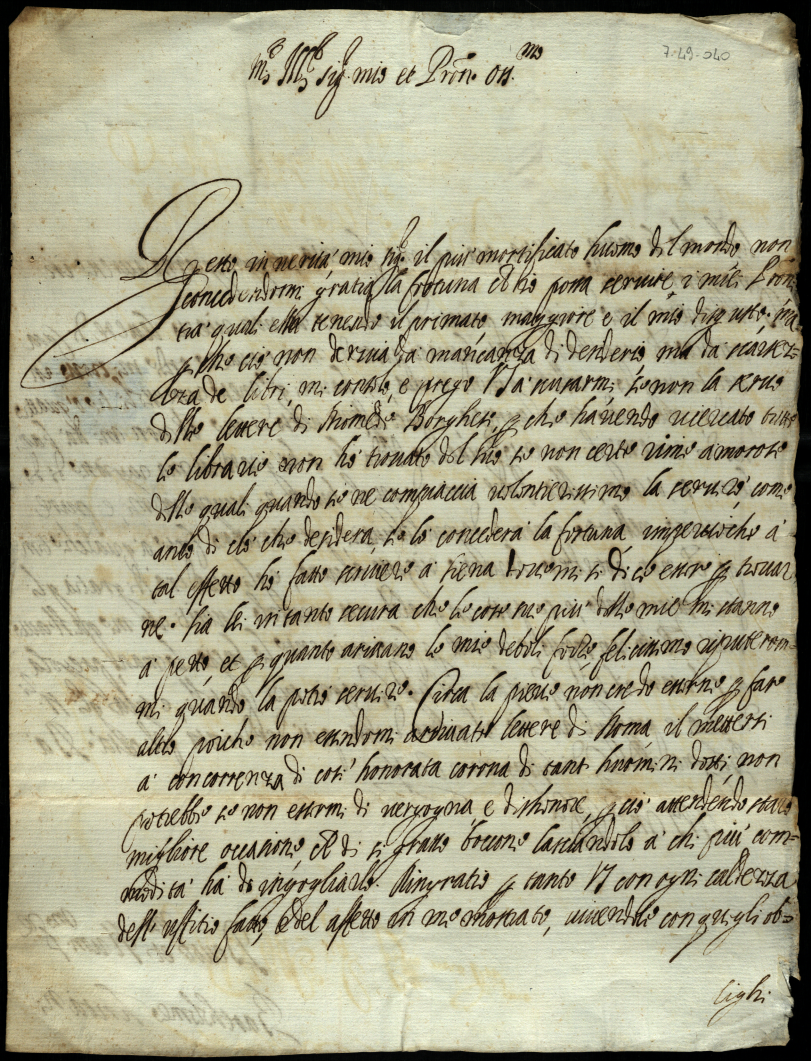 7-49-040
m.to Ill.re sig.r mio et Pron. oss.mo
Resto in verità mio sig.r il più mortificato huomo del mondo non
concedendomi gratia la fortuna ch'io possa servire i miei Pron
tra quali essa tenendo il primato maggiore è il mio disgusto. ma
p che ciò non deriva da mancanza di desiderio ma da scarsez=
za de libri, mi consolo, e prego VS a scusarmi se non la servo
delle lettere di Diomede Borghesi, p che havendo ricercato tutte
le librarie non ho trovato del suo se non certe rime amorose
delle quali quando se ne compiaccia volontierissimo la servirò come
anco di ciò che desidera, se lo concederà la fortuna impercioche à
tal effetto hò fatto scrivere à Siena dicesi essere p trovar
ne. Sia lei intanto secura che le cose sue più delle mie mi stanno
à petto, et p quanto arivano le mie deboli forze felicissimo riputerom=
mi quando la potrò servire. Circa la pieve non credo esserne p fare
altro poiche non essendomi arrivate lettere di Roma il mettersi
à concorrenza di così honorata corona di tanti huomini dotti non
potrebbe se non essermi di vergogna e dishonore, p ciò attendendo
migliore occasione di sì grasso boccone lasciandolo à chi più com=
modità hà de ingogliarlo. Ringratio p tanto VS con ogni caldezza
dell' uffitio fatto, e del affetto in me mostrato, vivendole con quegli ob=
lighi